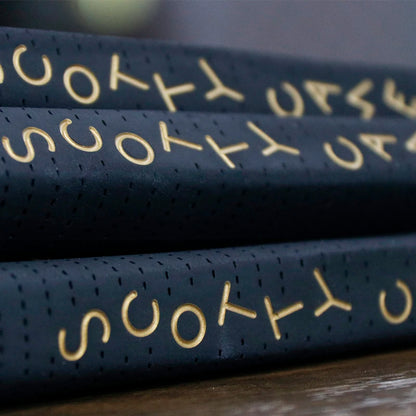 SCOTTY CAME
SCOTTY CA
SCOTTY C